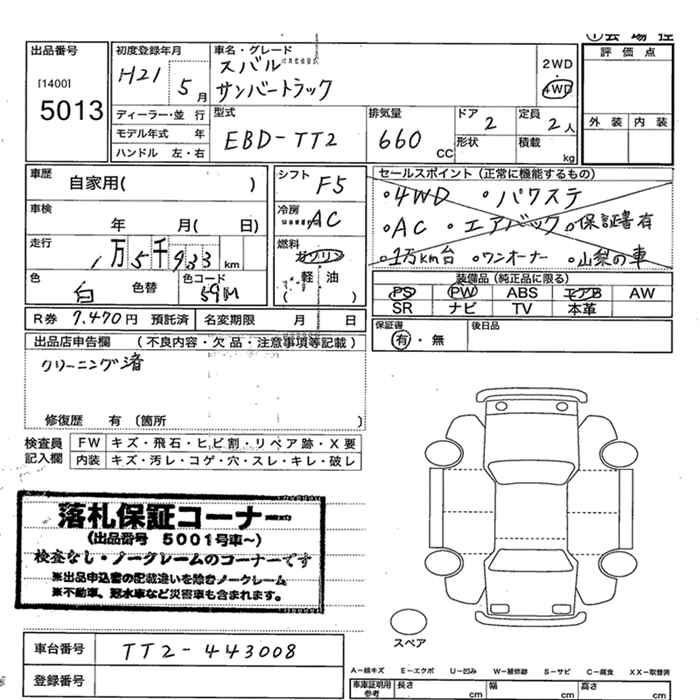 ①会場控
出品番号
[1400]
5013
初度登録年月
H21 5月
車名・グレード
スバル
サンバートラック
2WD
・
4WD
評価点
外装 内装
ディーラー・並行
モデル年式 年
ハンドル 左・右
型式
EBD-TT2
排気量
660 CC
ドア 2
形状
定員 2人
積載 kg
車歴
自家用( )
車検
年 月( 日)
走行
1万5千933km
色
白 色替
色コード
59M
シフト F5
冷房 AC
燃料
ガソリン
軽油
( )
セールスポイント(正常に機能するもの)
・4WD ・パワステ
・AC ・エアバック ・保証書有
・1万km台 ・ワンオーナー ・山梨の車
装備品(純正品に限る)
PS PW ABS エアB AW
SR ナビ TV 本革
R券 7,470円 預託済 名変期限 月 日
保証書
有・無
後日品
出品店申告欄 (不良内容・欠品・注意事項等記載)
クリーニング済
修復歴 有(箇所 )
検査員
記入欄
FW キズ・飛石・ヒビ割・リペア跡・X要
内装 キズ・汚レ・コゲ・穴・スレ・キレ・破レ
落札保証コーナー
(出品番号 5001号車~)
検査なし・ノークレームのコーナーです
※出品申込書の記載違いを除むノークレーム
※不動車、冠水車など災害車も含まれます。
スペア
車台番号 TT2-443008
登録番号
A−線キズ E−エクボ U−凹み W−補修跡 S−サビ C−腐食 XX−取替済
車庫証明用
参考
長さ cm 幅 cm 高さ cm